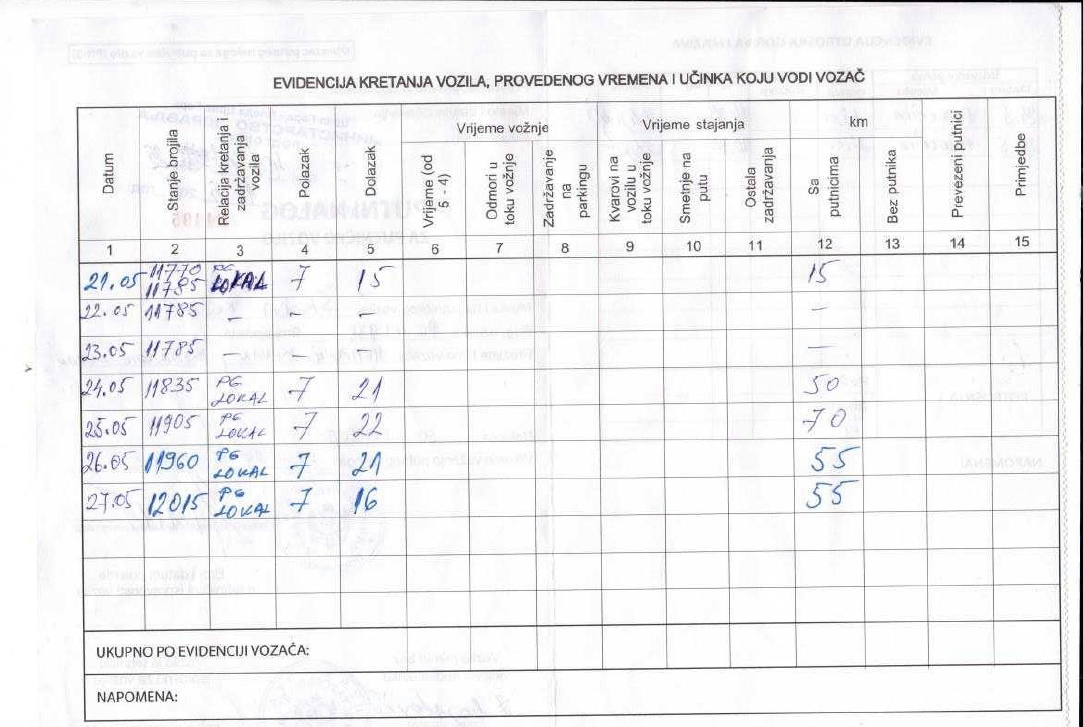 EVIDENCIJA KRETANJA VOZILA, PROVEDENOG VREMENA I UČINKA KOJU VODI VOZAČ
Datum Stanje brojila Relacija kretanja i zadržavanja vozila Polazak Dolazak Vrijeme vožnje Vrijeme stajanja km
Vrijeme (od 5 - 4) Odmori u toku vožnje Zadržavanje na parkingu Kvarovi na vozilu u toku vožnje Smetnje na putu Ostala zadržavanja Sa putnicima Bez putnika Prevezeni putnici Primjedbe
1 2 3 4 5 6 7 8 9 10 11 12 13 14 15
21.05 11770 11785 PG LOKAL 7 15 15
22.05 11785 – – – –
23.05 11785 – – – –
24.05 11835 PG LOKAL 7 21 50
25.05 11905 PG LOKAL 7 22 70
26.05 11960 PG LOKAL 7 21 55
27.05 12015 PG LOKAL 7 16 55
UKUPNO PO EVIDENCIJI VOZAČA:
NAPOMENA: